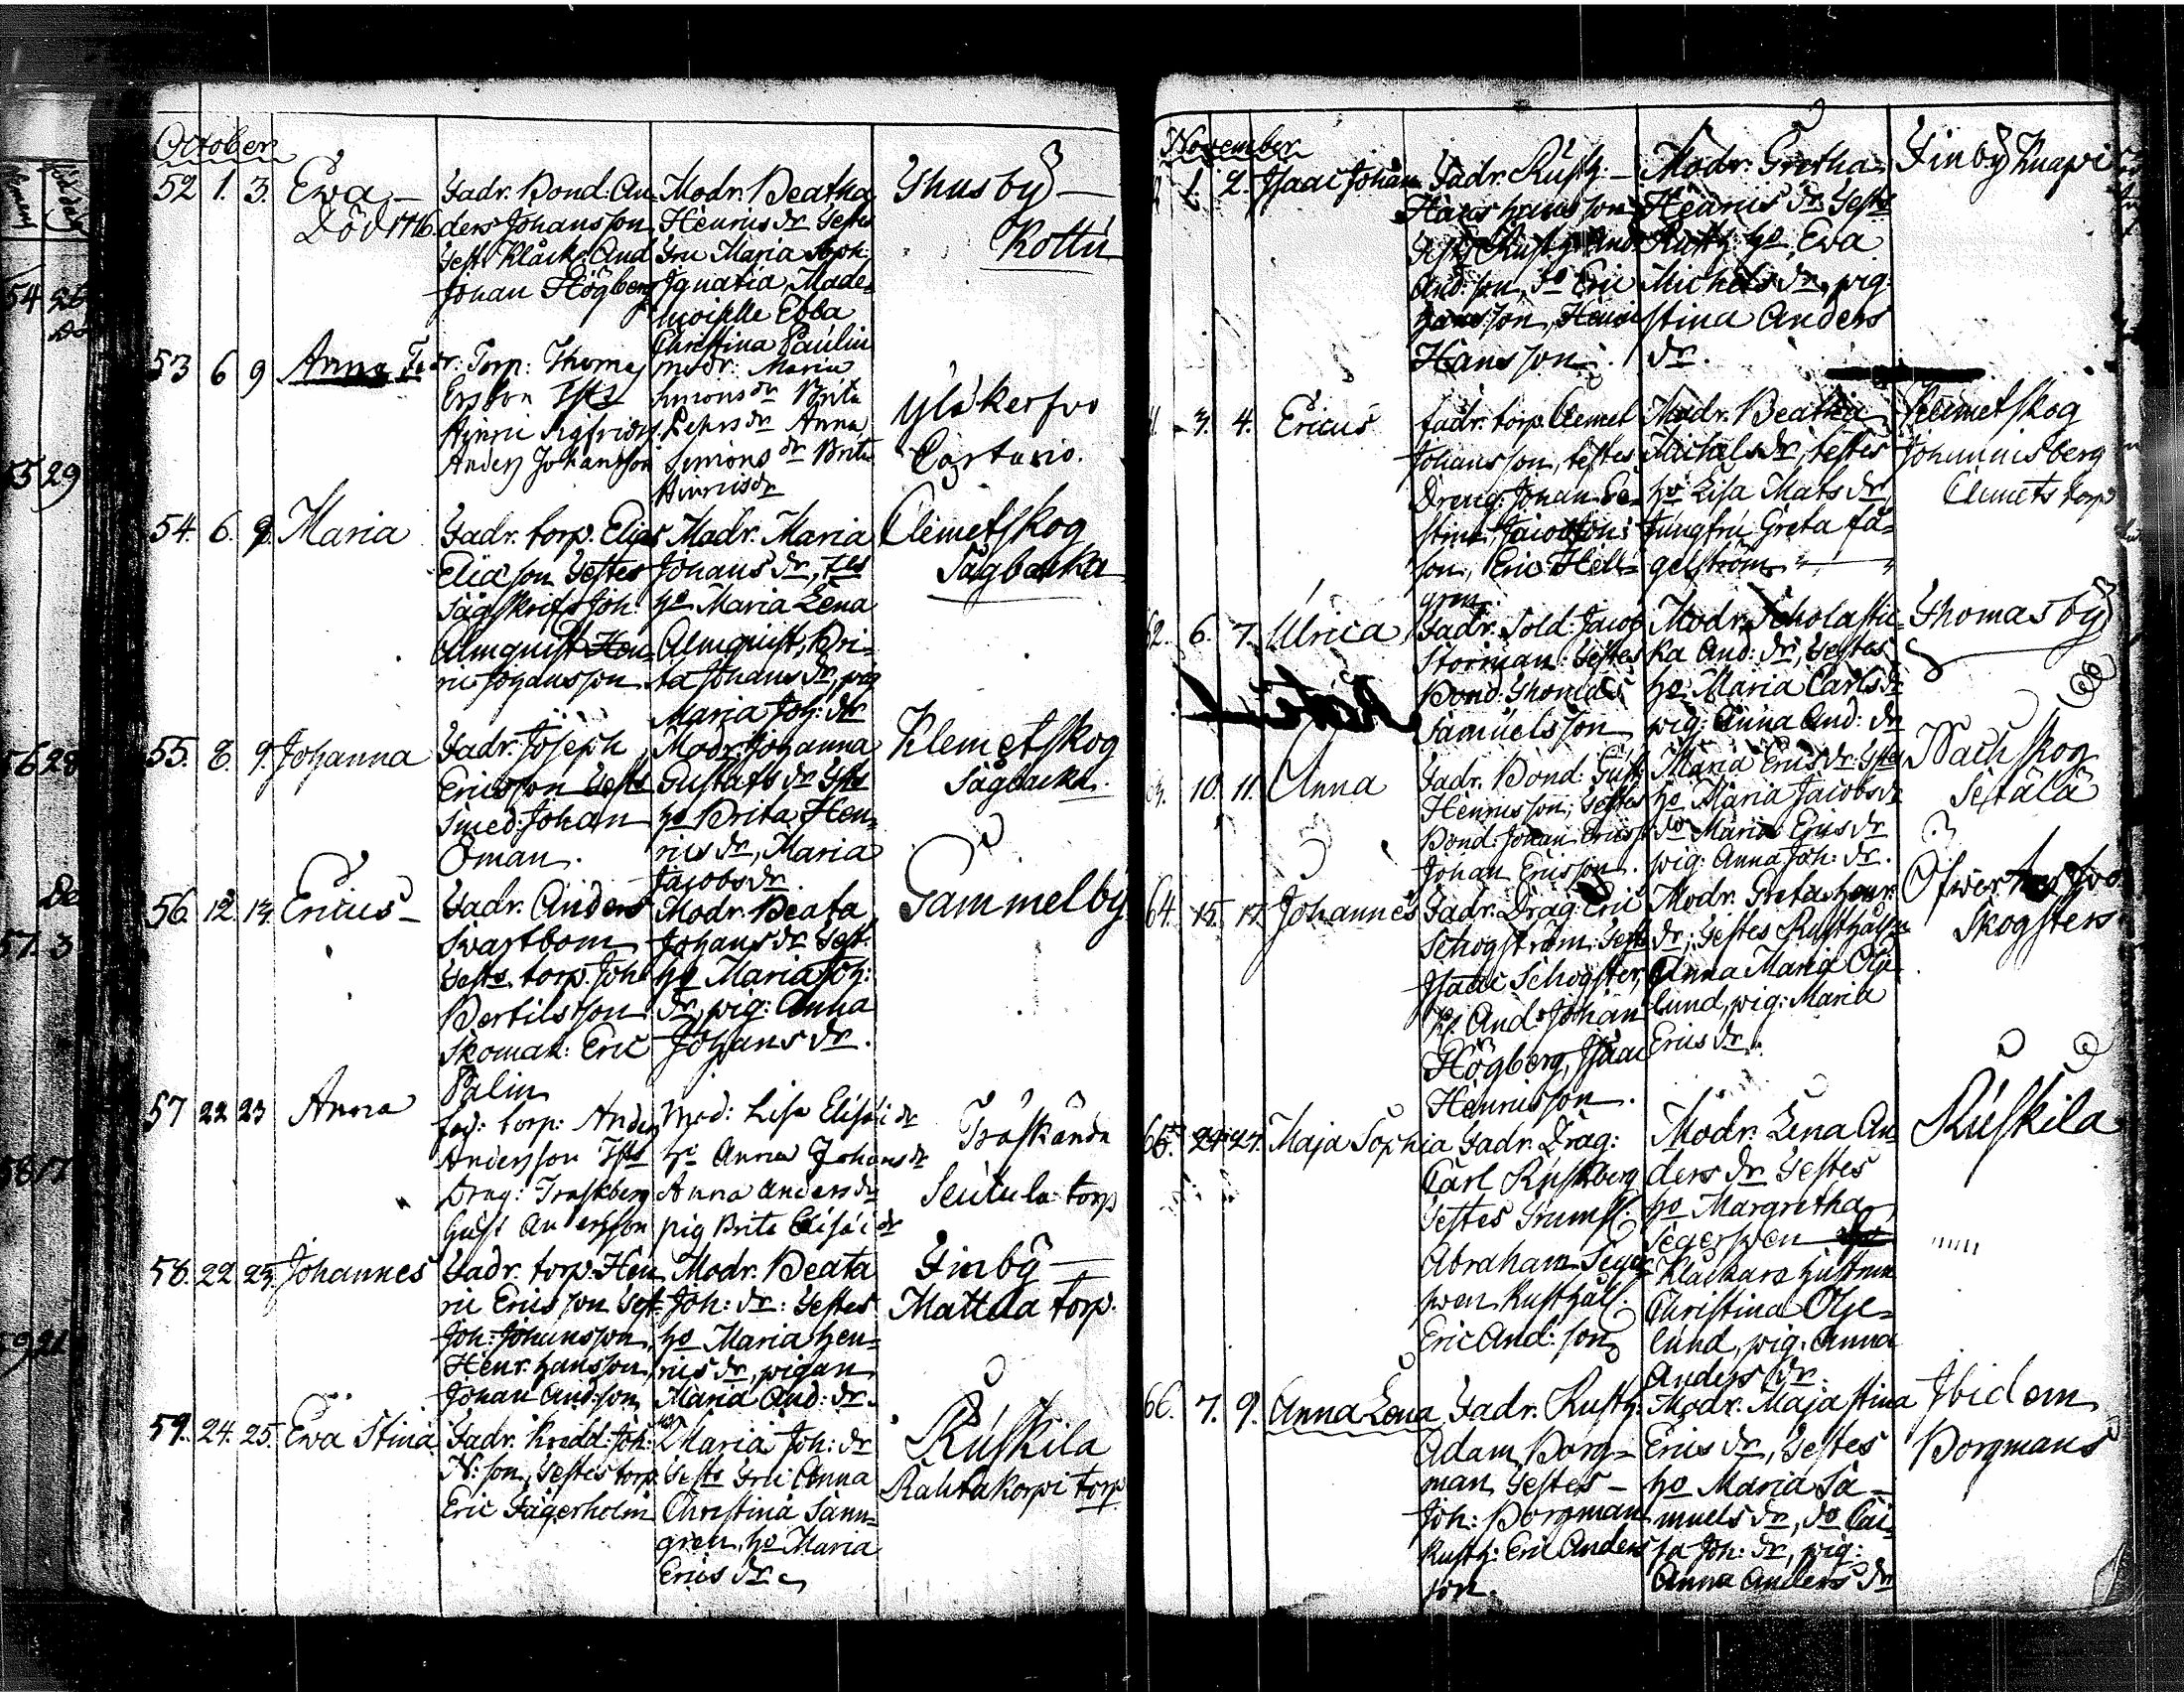 October
52 1. 3. Ewa
Död 1786.
Fadr. Bond. An
ders Johansson
Test. Klåck. And
Johan Högberg
Modr. Beatha
Henrics dr Testes
Fru Maria Soph:
Ignatia, Made=
moiselle Ebba
Christina Paulin
Thusby
Kottu
53 6 9 Anna
Fadr. Torp: Thomas
Ersson Tsts
Hinric Sigfridss
Anders Johansson
modr: Maria
Simons dr Brita
Pehrs dr Anna
Simons dr Brita
Hinricsdr
54. 6. 9. Maria
Fadr. torp. Elias
Eliason Testes
Sågskrif. Joh:
Almquist Hen=
ric Johansson
Modr. Maria
Johans dr, Tes
ho Maria Lena
Almquist, Bri=
ta Johans dr, pig
Maria Joh: dr
Clemetskog
Sågbacka
55. 8. 9. Johanna
Fadr. Joseph
Ericsson Tests
Smed: Johan
Öman.
Modr. Johanna
Gustafs dr Tsts
ho Brita Hen=
rics dr, Maria
Jacobs dr.
Klemetskog
Sågbacka.
56. 12. 14. Ericus
Fadr. Anders
Svartbom
Tests. torp. Joh
Bertilsson
Skomak: Eric
Palin
Modr. Beata
Johans dr Test.
ho Maria Joh:
dr, pig: Anna
Johans dr.
Gammelby
57 22 23 Anna
fad: torp: Anders
Andersson Tsts
Drag: Traskberg
Gust Andersson
Mod: Lisa Elisæi dr
ho Anna Johans dr
Anna Anders dr
pig Brita Elisæi dr
Träskända
Seutula torp
58. 22 23. Johannes
Fadr. torp. Hen
ric Ericsson Test:
Joh: Johansson,
Henr. Hansson
Johan And:son
Modr. Beata
Joh: dr: Testes
ho Maria Hen=
rics dr, pigan
Maria And: dr.
Finby
Mattila torp.
59. 24. 25. Ewa Stina
Fadr. Joh:
N:son, Testes torp
Eric Jägerholm
Maria Joh: dr
Tests Fru Anna
Christina Sann=
gren, ho Maria
Erics dr
Ruskila
Rahtakorpi torp
November
1. 2. Isaac Johan
Fadr. Rusth:
Hans Hansson
And:son, do Eric
Hansson, Henric
Hansson.
Modr. Gretha
Henrics dr Testes
Rusth: ho, Eva
Michels dr, pig:
Stina Anders
dr.
Finby Knapi
3. 4. Ericus
fadr. torp. Clemet
Johansson, testes
Dreng. Johan
son, Eric Hell=
gren.
Modr. Beatha
Michels dr, testes
ho Lisa Mats dr,
Jungfru Greta Få=
gelström
Klemetskog
Johannisberg
Clemets torp
62. 6. 7. Ulrica
Fadr. Sold: Jacob
Storman: Testes
Bond: Thomas
Samuelsson
Modr. Scholasti
ka And: dr, Testes
ho Maria Carls dr
pig: Anna And: dr
Thomasby
63. 10. 11. Anna
Fadr. Bond: Gust:
Henricsson; Testes
Bond: Johan Ericss
Johan Ericsson.
Maria Erics dr Tstes
ho Maria Jacobs dr
do Maria Erics dr
pig: Anna Joh: dr.
Nackskog
Seitälä
64. 15. 17. Johannes
Fadr. Drag: Eric
Schogström: Test
Isaac Schogster,
Kl. And: Johan
Högberg, Isaac
Henricsson.
Modr. Greta Henr:
dr; Testes Rusthåls
Anna Maria Olje
lund, pig: Maria
Erics dr.
Skogsters
65. 24. 27. Maja Sophia
Fadr. Drag:
Carl Ruskberg
Testes Trump.
Abraham Seger
swen Rusthåll:
Eric And: son
Modr. Lena An
ders dr Testes
ho Margretha
Segerswen
Klåckars hustrun
Christina Olje=
lund, pig. Anna
Anders dr.
Ruskila
66. 7. 9. Anna Lena
Fadr. Rusth:
Adam Borg=
man Testes
Joh: Borgman
Rusth: Eric Anders
son.
Modr. Maja Stina
Erics dr, Testes
ho Maria Sa
muels dr, do Cai=
sa Joh: dr, pig:
Anna Anders dr
Ibidem
Borgmans